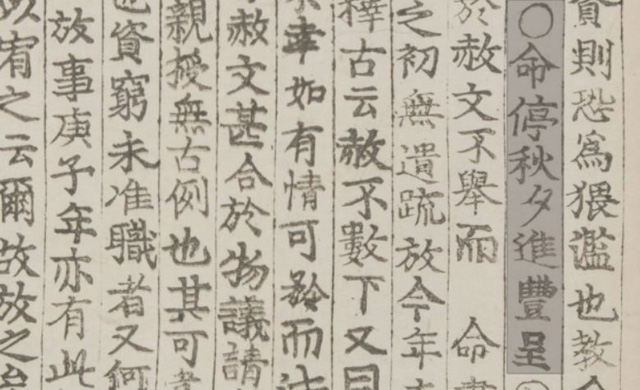 則恐爲猥濫也教
○命停秋夕進豐呈
於赦文不舉而 命
之初無遺疏放今年
擇古云赦不數下又曰
幸如有情可矜而法
赦文甚合於物議請
親授無古例也其可
也資窮未准職者又何
故事庚子年亦有此
宥之云爾故放之